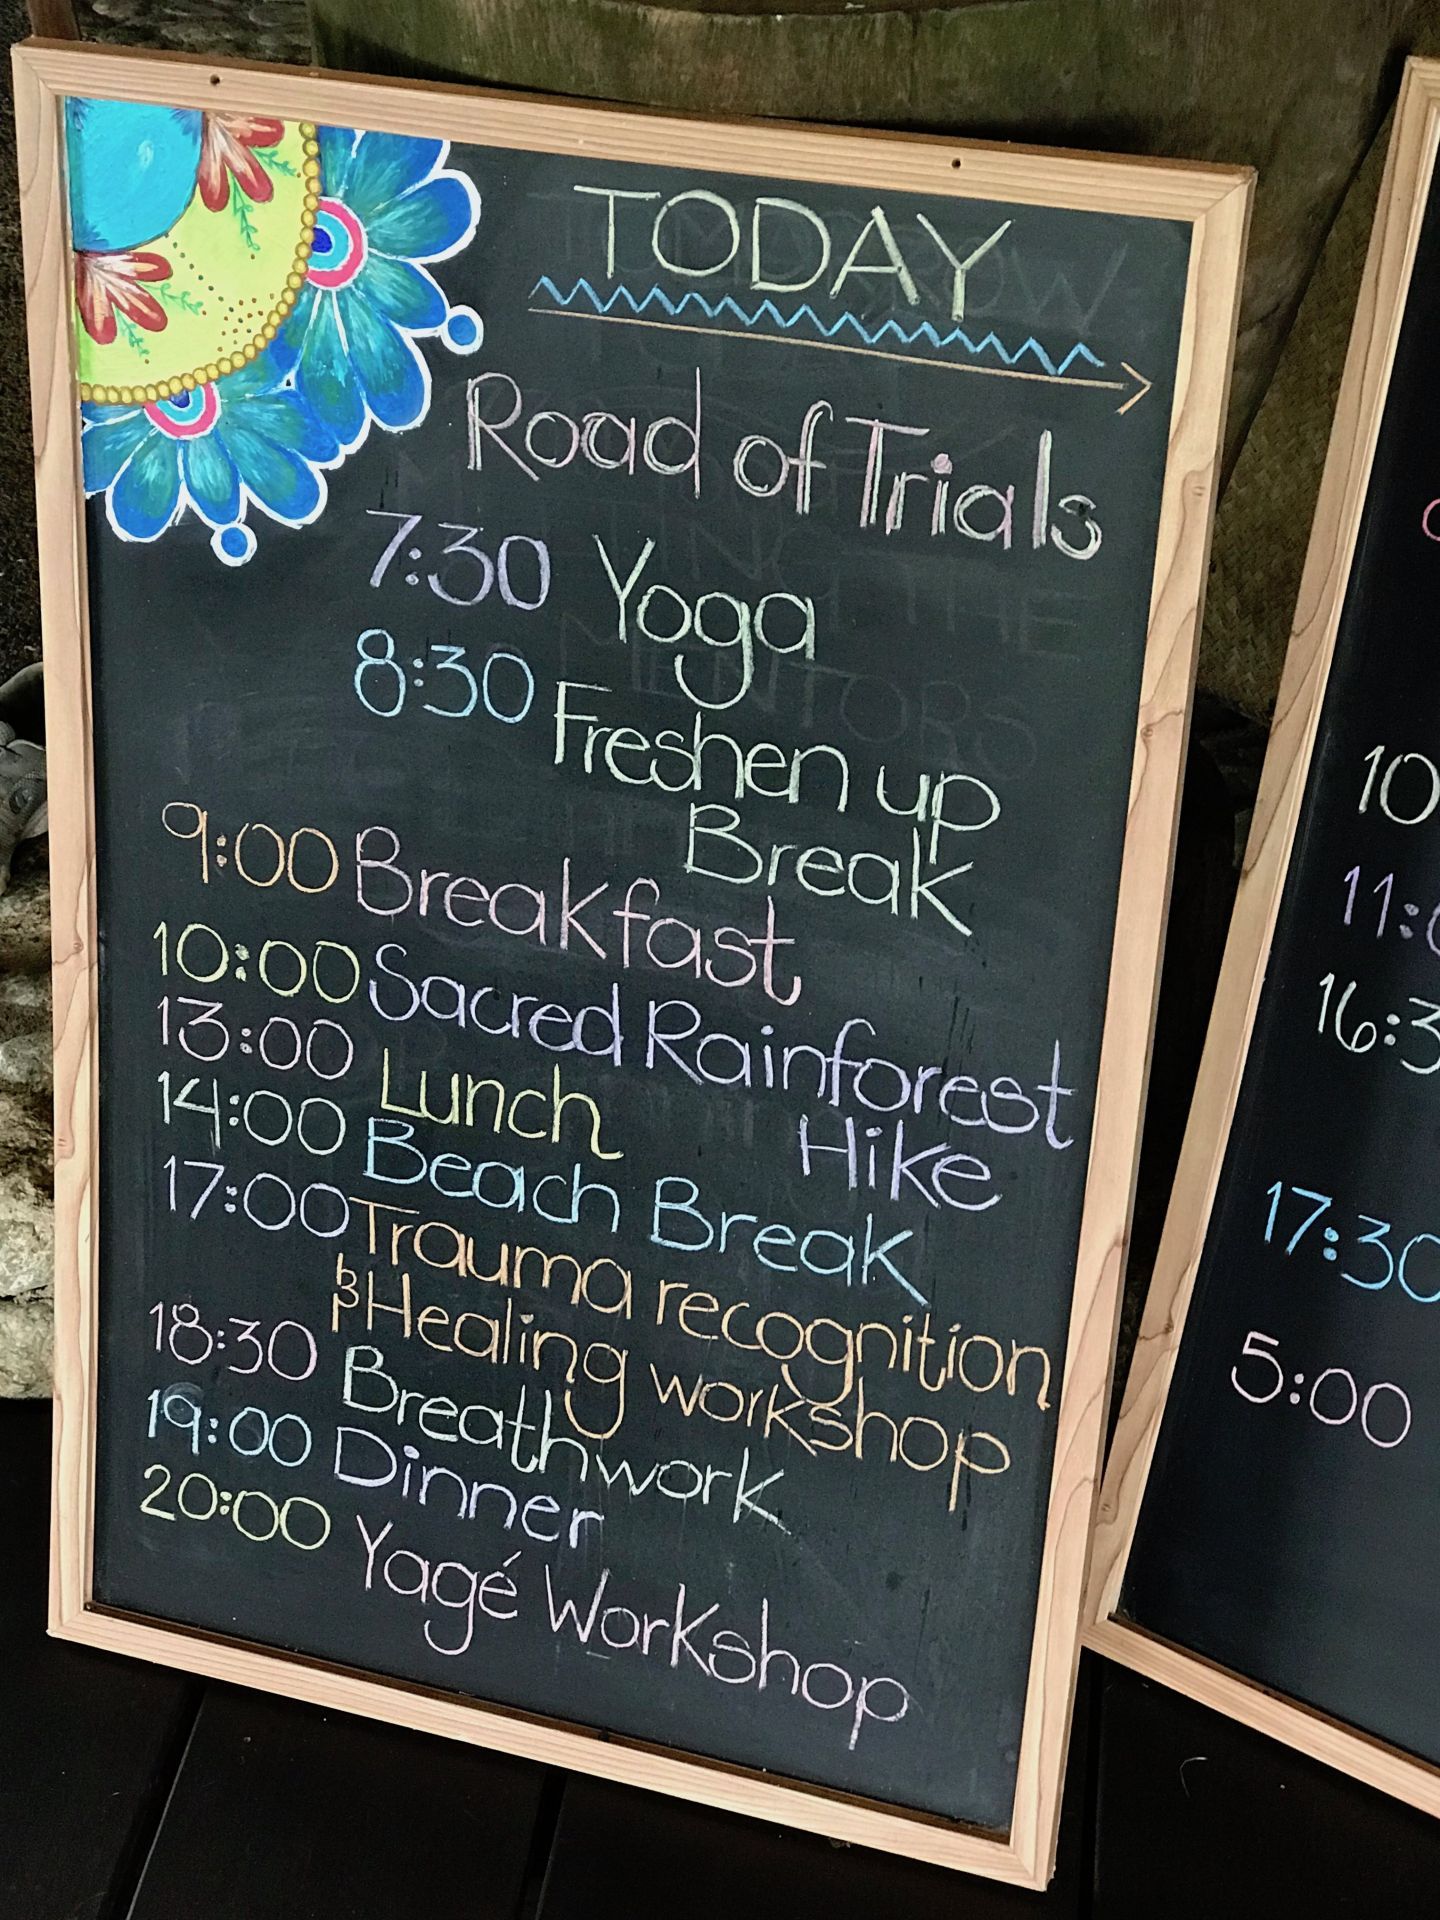 TODAY
Road of Trials
7:30 Yoga
8:30 Freshen up
Break
9:00 Breakfast
10:00 Sacred Rainforest
Hike
13:00 Lunch
14:00 Beach Break
17:00 Trauma recognition
& Healing workshop
18:30 Breathwork
19:00 Dinner
20:00 Yagé Workshop
10
11:0
16:3
17:30
5:00